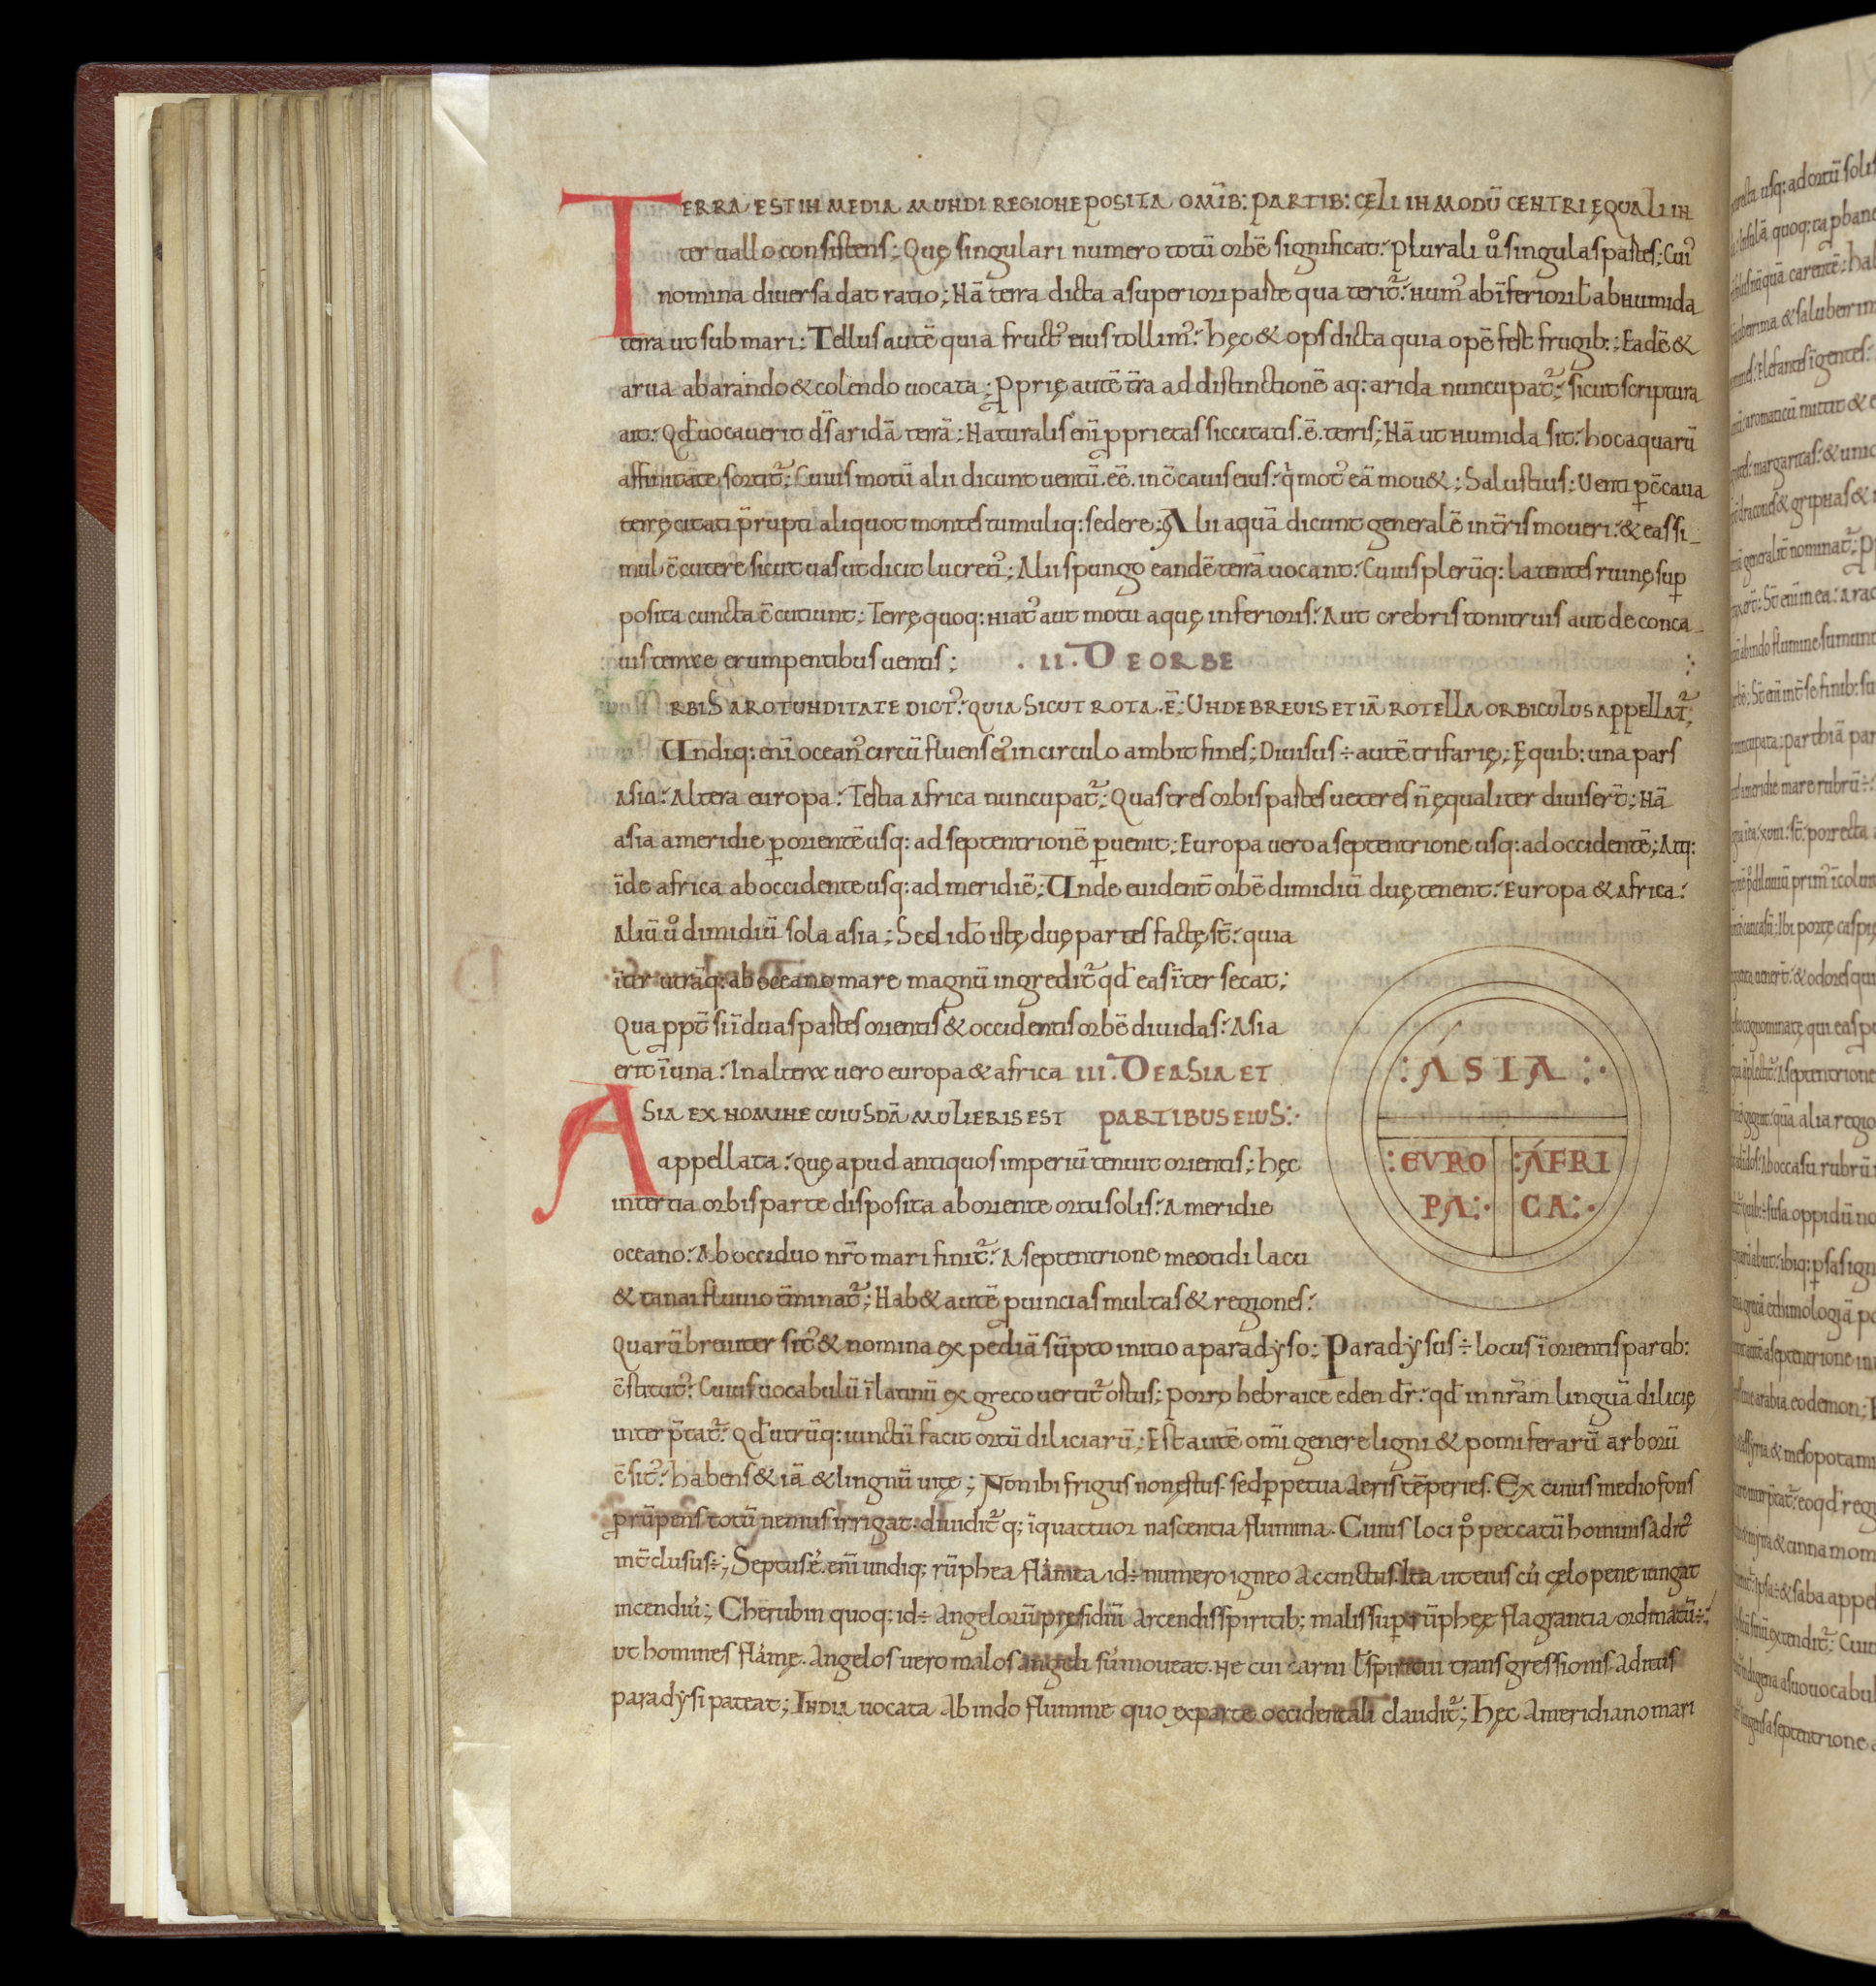 TERRA EST IN MEDIA MUNDI REGIONE POSITA OMĪB: PARTIB: CĘLI IN MODŪ CENTRI ĘQUALI IN
ter uallo consistens; Quę singulari numero totū orbē significat. Plurali ů singulas partes; Cui᾽
nomina diuersa dat ratio; Nā terra dicta a superiori parte qua terit᷑. hum᾽ ab īferiori ł ab humida
terra ut sub mari; Tellus autē quia fruct᾽ eius tollim᾽. hęc & ops dicta quia opē fert frugib:; Eadē &
arua ab arando & colendo uocata; ꝓprię autē t̄ra ad distinctionē aq: arida nuncupat᷑. sicut scriptura
ait. Qđ uocauerit d̄s aridā terrā; Naturalis enī ꝓprietas siccitatis .ē. terris; Nā ut humida sit. hoc aquarū
affinitate sortit᷑. Cuius motū alii dicunt uentū .eē. in c̄cauis eius. q̇ mot᾽ eā mou&; Salustius; Uenti ꝑ c̄caua
terrę citati p̄rupti aliquot montes tumuliq: sedere; Alii aquā dicunt generalē in t̄ris moueri. & eas si_
mul c̄cutere sicut uas ut dicit lucreti᾽; Alii spungo eandē terrā uocant. Cuius plerūq: latentes ruinę suꝑ
posita cuncta c̄cutiunt; Terrę quoq: hiat᾽ aut motu aquę inferioris. Aut crebris tonitruis aut de conca_
uis terrae erumpentibus uentis; .II. DE ORBE
RBIS A ROTUNDITATE DICT᾽. QUIA SICUT ROTA .Ē; UNDE BREUIS ETIĀ ROTELLA ORBICULUS APPELLAT᷑;
Undiq: enī ocean᾽ circū fluens ei᾽ in circulo ambit fines; Diuisus ÷ autē trifarię; E quib: una pars
asia. Altera europa. Tertia africa nuncupat᷑; Quas tres orbis partes ueteres n̄ ęqualiter diuisert̄; Nā
asia a meridie ꝑ orientē usq: ad septentrionē ꝑuenit; Europa uero a septentrione usq: ad occidentē; Atq:
īde africa ab occidente usq: ad meridiē; Unde euident̄ orbē dimidiū duę tenent. Europa & africa.
Aliū ů dimidiū sola asia; Sed idō istę duę partes factę st̄. quia
īter utrāq: ab oceano mare magnū ingredit᷑ qđ eas īter secat;
Qua ppt̄ si ī duas partes orientis & occidentis orbē diuidas. Asia
erit ī una. In altera uero europa & africa III. DE ASIA ET
ASIA EX NOMINE CUIUSDĀ MULIERIS EST PARTIBUS EIUS:·
appellata. quę apud antiquos imperiū tenuit orientis; hęc
in tertia orbis parte disposita ab oriente ortu solis. A meridie
oceano. Ab occiduo nr̄o mari finit᷑. A septentrione meotidi lacu
& tanai fluuio t̄minat᷑; Hab& autē ꝓuincias multas & regiones.
Quarū breuiter sit᾽ & nomina expediā sūpto initio a paradyso; Paradysus ÷ locus ī orientis partib:
c̄stitut᾽. Cuius uocabulū ī latinū ex greco uertit᷑ ortus; porro hebraice eden dr̄. qđ in nr̄am linguā dilicię
interp̄tat᷑. Qđ utrūq: iunctū facit ortū diliciarū; Est autē omī genere ligni & pomiferarū arborū
c̄sit᾽. habens & iā & lingnū uitę; Non ibi frigus non ęstus. sed ꝑpetua aeris tēperies. Ex cuius medio fons
prūpens totū nemus irrigat. diuidit᷑ q; ī quattuor nascentia flumina. Cuius loci p̊ peccatū hominis adit᾽
int̄clusus ÷; Septus .ē. enī undiq: rūphea flāmea id ÷ numero igneo accinctus. Ita ut eius cū cęlo pene iungat
incendiū; Cherubin quoq: id ÷ angelorū presidiū arcendis spiritib; malis suꝑ rūpheę flagrantia ordinatū ÷;
ut homines flāmę. Angelos uero malos angeli sūmoueat. Ne cui carni ł spiritui transgressionis aditus
paradysi pateat; INDIA uocata ab indo flumine quo ex parte occidentali claudit᷑; Hęc a meridiano mari
:ASIA:·
:EVRO
PA:·
:AFRI
CA:·